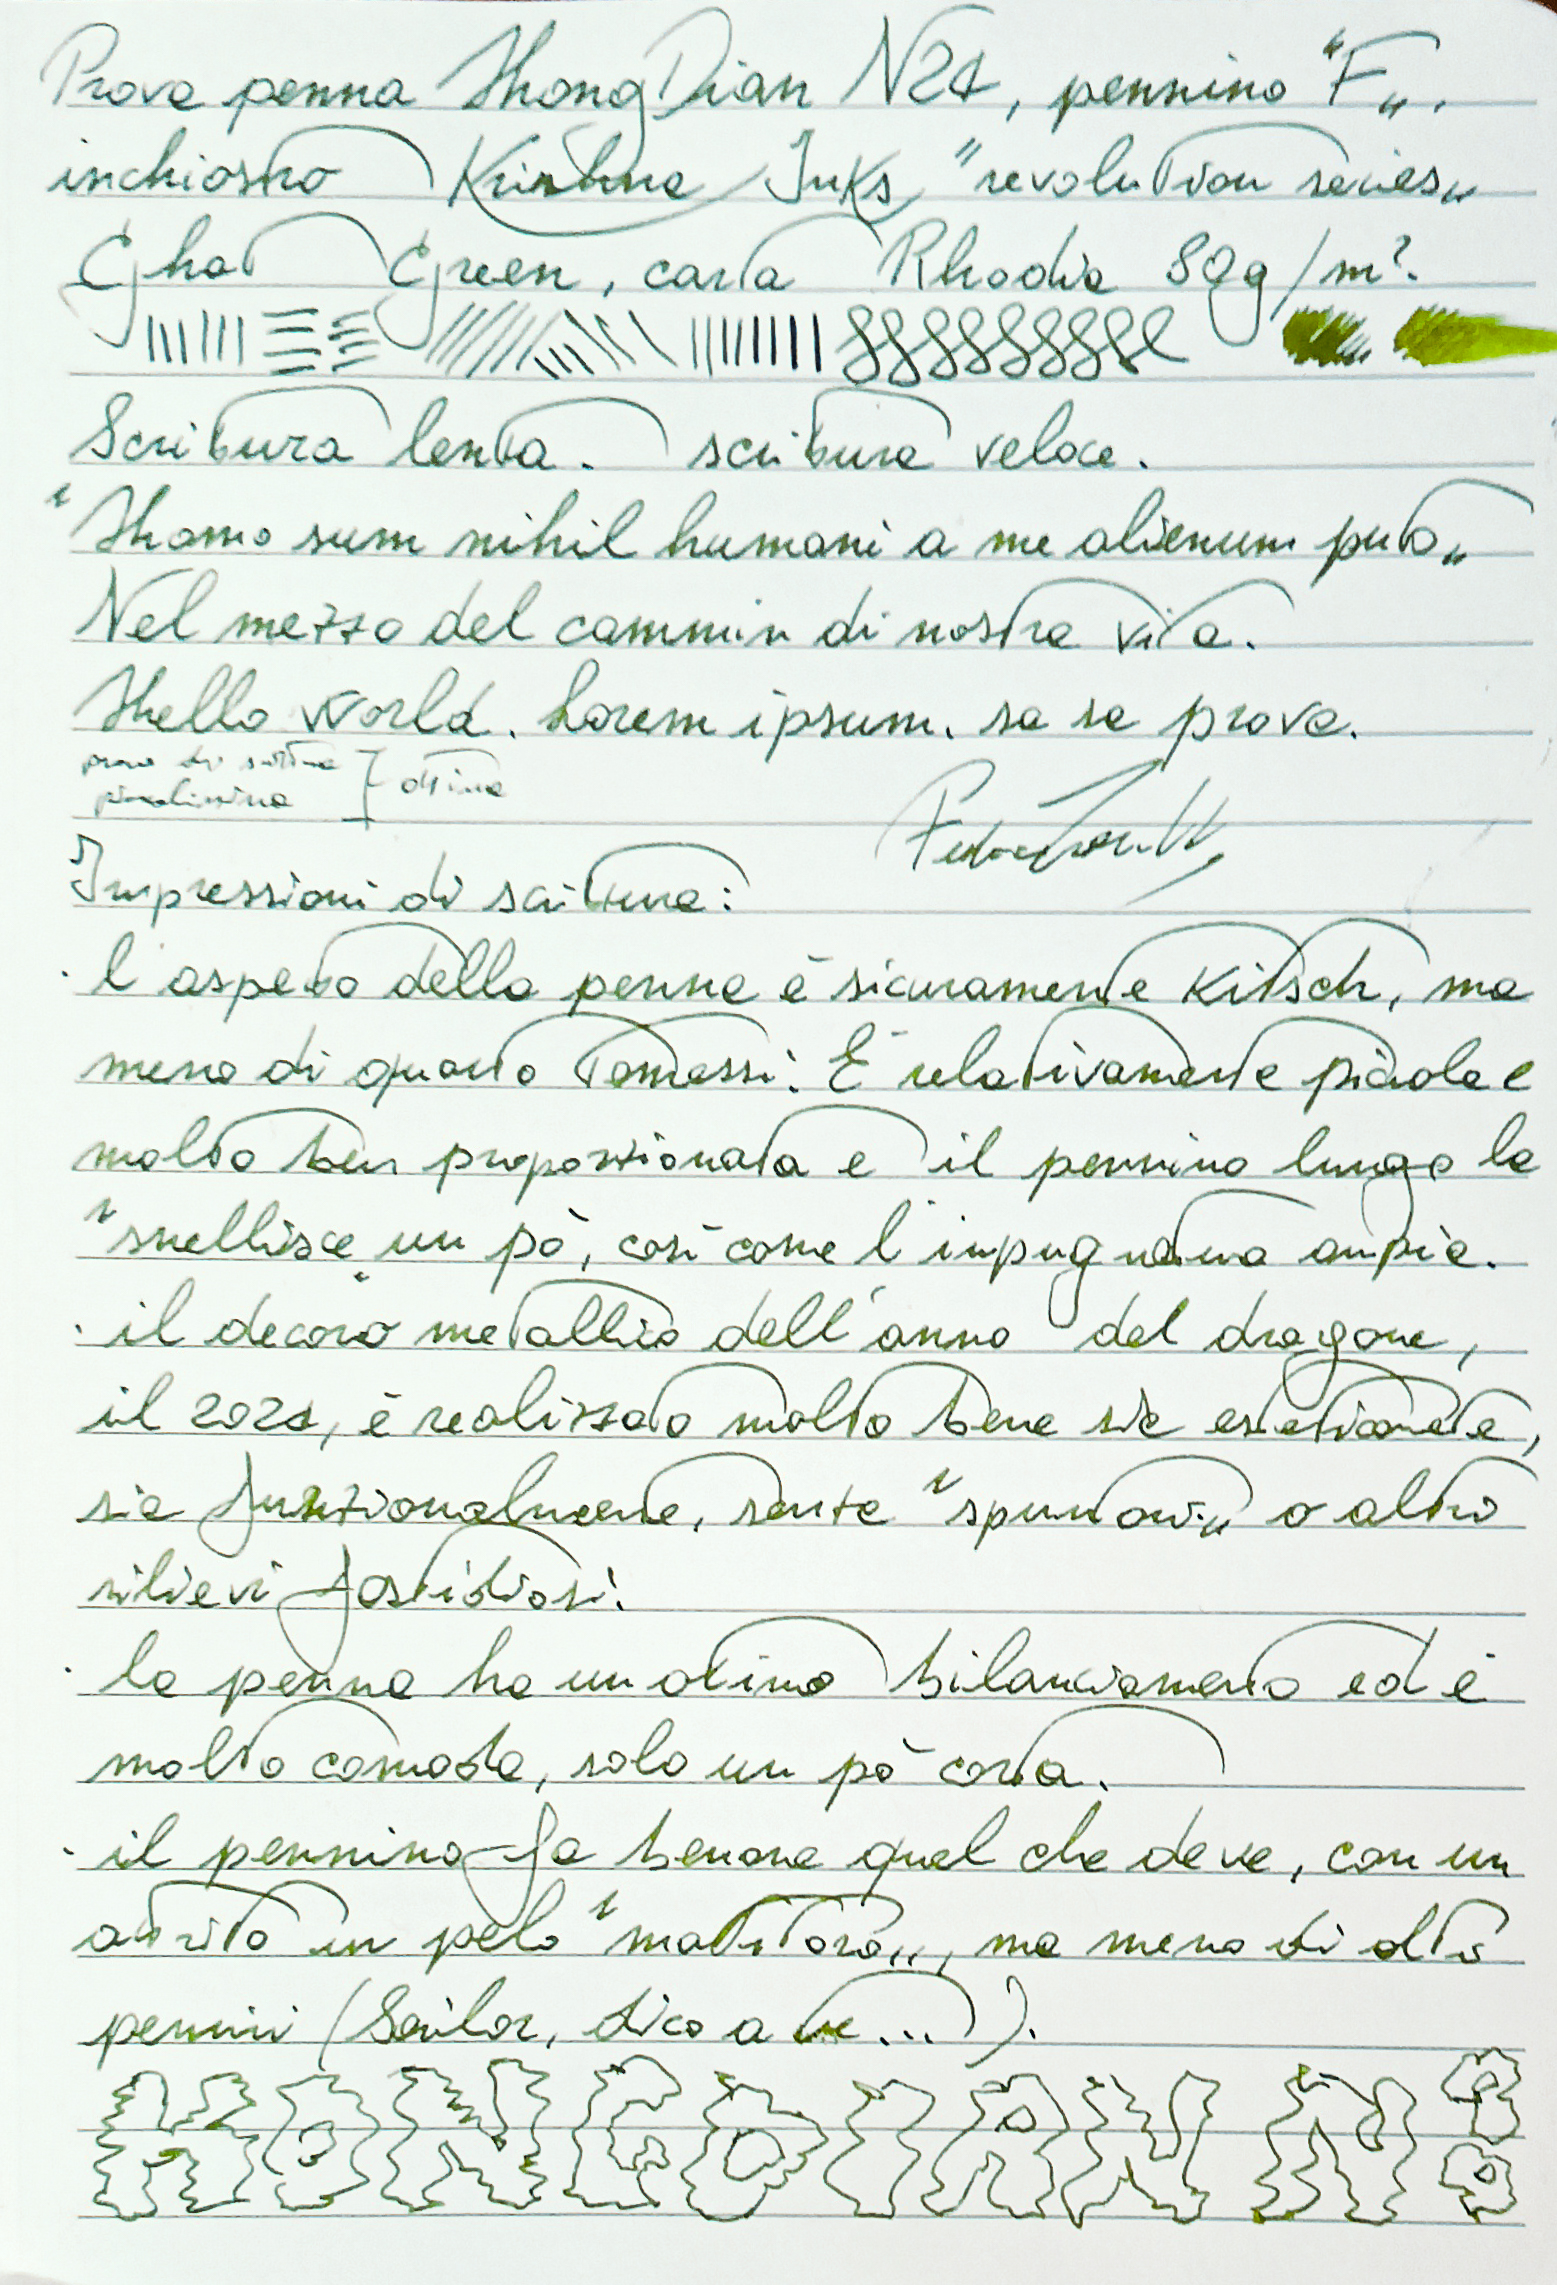 Prova penna HongDian N24, pennino "F".
inchiostro Krishna Inks "revolution series"
Ghat Green, carta Rhodia 80g/m².
Scrittura lenta. scrittura veloce.
"Homo sum nihil humani a me alienum puto"
Nel mezzo del cammin di nostra vita.
Hello World. Lorem ipsum. sa sa prova.
prova di scrittura
piccolissima } ottima
Impressioni di scrittura:
· l'aspetto della penna è sicuramente kitsch, ma
meno di quanto temessi. È relativamente piccola e
molto ben proporzionata e il pennino lungo la
"snellisce" un pò, così come l'impugnatura ampia.
· il decoro metallico dell'anno del dragone,
il 2024, è realizzato molto bene sia esteticamente,
sia funzionalmente, senza "spuntoni" o altri
rilievi fastidiosi.
· la penna ha un ottimo bilanciamento ed è
molto comoda, solo un pò corta.
· il pennino fa benone quel che deve, con un
attrito un pelo "matitoso", ma meno di altri
pennini (Sailor, dico a te...).
HONGDIAN N